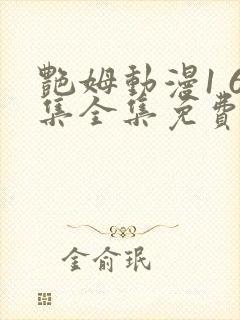 艷姆動漫1 6
集全集免費
金俞珉